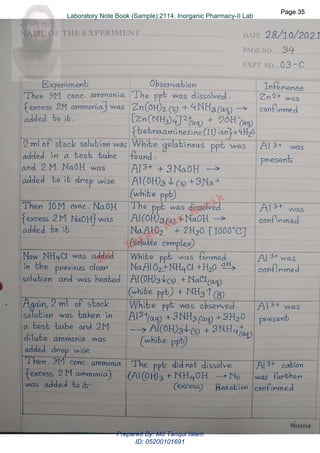 Laboratory Note Book (Sample):2114: Inorganic Pharmacy-II Lab
Page 35
NAME OF THE EXPERIMENT
DATE 28/10/2021
PAGE NO. 34
EXPT. NO. 03-C
Experiment Observation Inference
Then 9M conc. ammonia
{excess 2M ammonia} was
added to it.
The ppt was dissolved.
Zn(OH)2(s) + 4NH3(aq) →
[Zn(NH3)4]2+(aq) + 2OH-(aq)
{tetraaminezinc(II) ion} + 4H2O
Zn2+ was
confirmed
2 ml of stock solution was
added in a test tube
and 2M NaOH was
added to it drop wise
White gelatinous ppt was
found.
Al3+ + 3NaOH →
Al(OH)3↓(s) + 3Na+
(white ppt)
Al3+ was
present
Then 10M conc. NaOH
{excess 2M NaOH} was
added to it
The ppt was dissolved
Al(OH)3(s) + NaOH →
NaAlO2 + 2H2O [1000°C]
(soluble complex)
Al3+ was
confirmed
Now NH4Cl was added
in the previous clear
solution and was heated
White ppt was formed
NaAlO2 + NH4Cl + H2O
Al(OH)3↓(s) + NaCl(aq)
(white ppt) + NH3↑(g)
Al3+ was
confirmed
Again, 2 ml of stock
solution was taken in
a test tube and 2M
dilute ammonia was
added drop wise
White ppt was observed
Al3+(aq) + 3NH3(aq) + 3H2O
→ Al(OH)3↓(s) + 3NH4+(aq)
(white ppt)
Al3+ was
present
Then 9M conc. ammonia
{excess 2M ammonia}
was added to it.
The ppt did not dissolve
Al(OH)3 + NH4OH → No
(excess) Reaction
Al3+ cation
was further
confirmed
Victoria
Prepared By: Md Tanjul Islam
ID: 05200101691